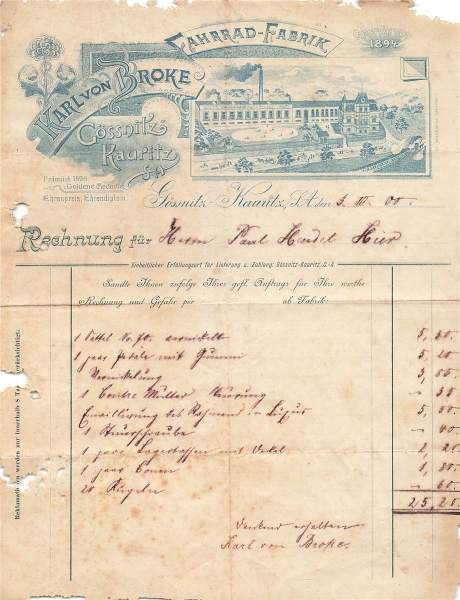 FAHRRAD-FABRIK
1894
KARL VON BROKE
Gössnitz-
Kauritz
S-A
Prämiirt 1896
Goldene Medaille
Ehrenpreis, Ehrendiplom.
Gössnitz-Kauritz, S.A. den 3. III. 00.
Rechnung für Herrn Paul Hier.
Einheitlicher Erfüllungsort für Lieferung u. Zahlung: Gössnitz-Kauritz, S.-A.
Sandte Ihnen zufolge Ihres gefl. Auftrags für Ihre werthe
Rechnung und Gefahr per ab Fabrik:
1 Sattel No. 70. vernickelt 5, 50.
1 paar Pedale mit Gummi 5, 20.
Vernickelung 3, 00.
1 Conus Mutter
Emaillirung des Rahmens 5, 00
1 Steuerschraube
1 paar mit 2, 20.
1 paar Conen 1, 80.
20 Kugeln - 60.
25, 20.
Dankend erhalten
Karl von Broke.
Reklamationen werden nur innerhalb 8 Tagen berücksichtigt.